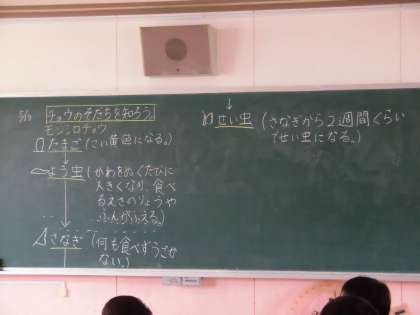 チョウのそだちを知ろう。
モンシロチョウ
たまご(こい黄色になる。)
よう虫(かわをぬぐたびに
大きくなり、食べ
るえさのりょうや
ふんがふえる。)
さなぎ(何も食べずうごか
ない。)
せい虫(さなぎから2週間くらい
でせい虫になる。)